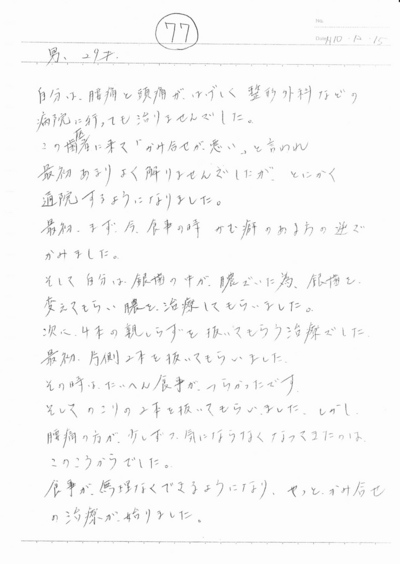 77
No.
H10・10・15
男、29才.
自分は、腰痛と頭痛が、はげしく 整形外科などの
病院に行っても治りませんでした。
この歯医者に来て「かみ合せが、悪い」と言われ
最初あまりよく解りませんでしたが、とにかく
通院するようになりました。
最初、まず、今、食事の時 かむ癖のある方の逆で
かみました。
そして自分は、銀歯の中が、膿んでいた為、銀歯を、
変えてもらい 膿を、治療してもらいました。
次に、4本の親しらずを抜いてもらう治療でした
最初、片側2本を抜いてもらいました。
その時は、たいへん食事が、つらかったです。
そしてのこりの2本を抜いてもらいました。しかし、
腰痛の方が、少しずつ、気にならなくなってきたのは、
このころからでした。
食事が、無理なくできるようになり、やっと、かみ合せ
の治療が、始りました。